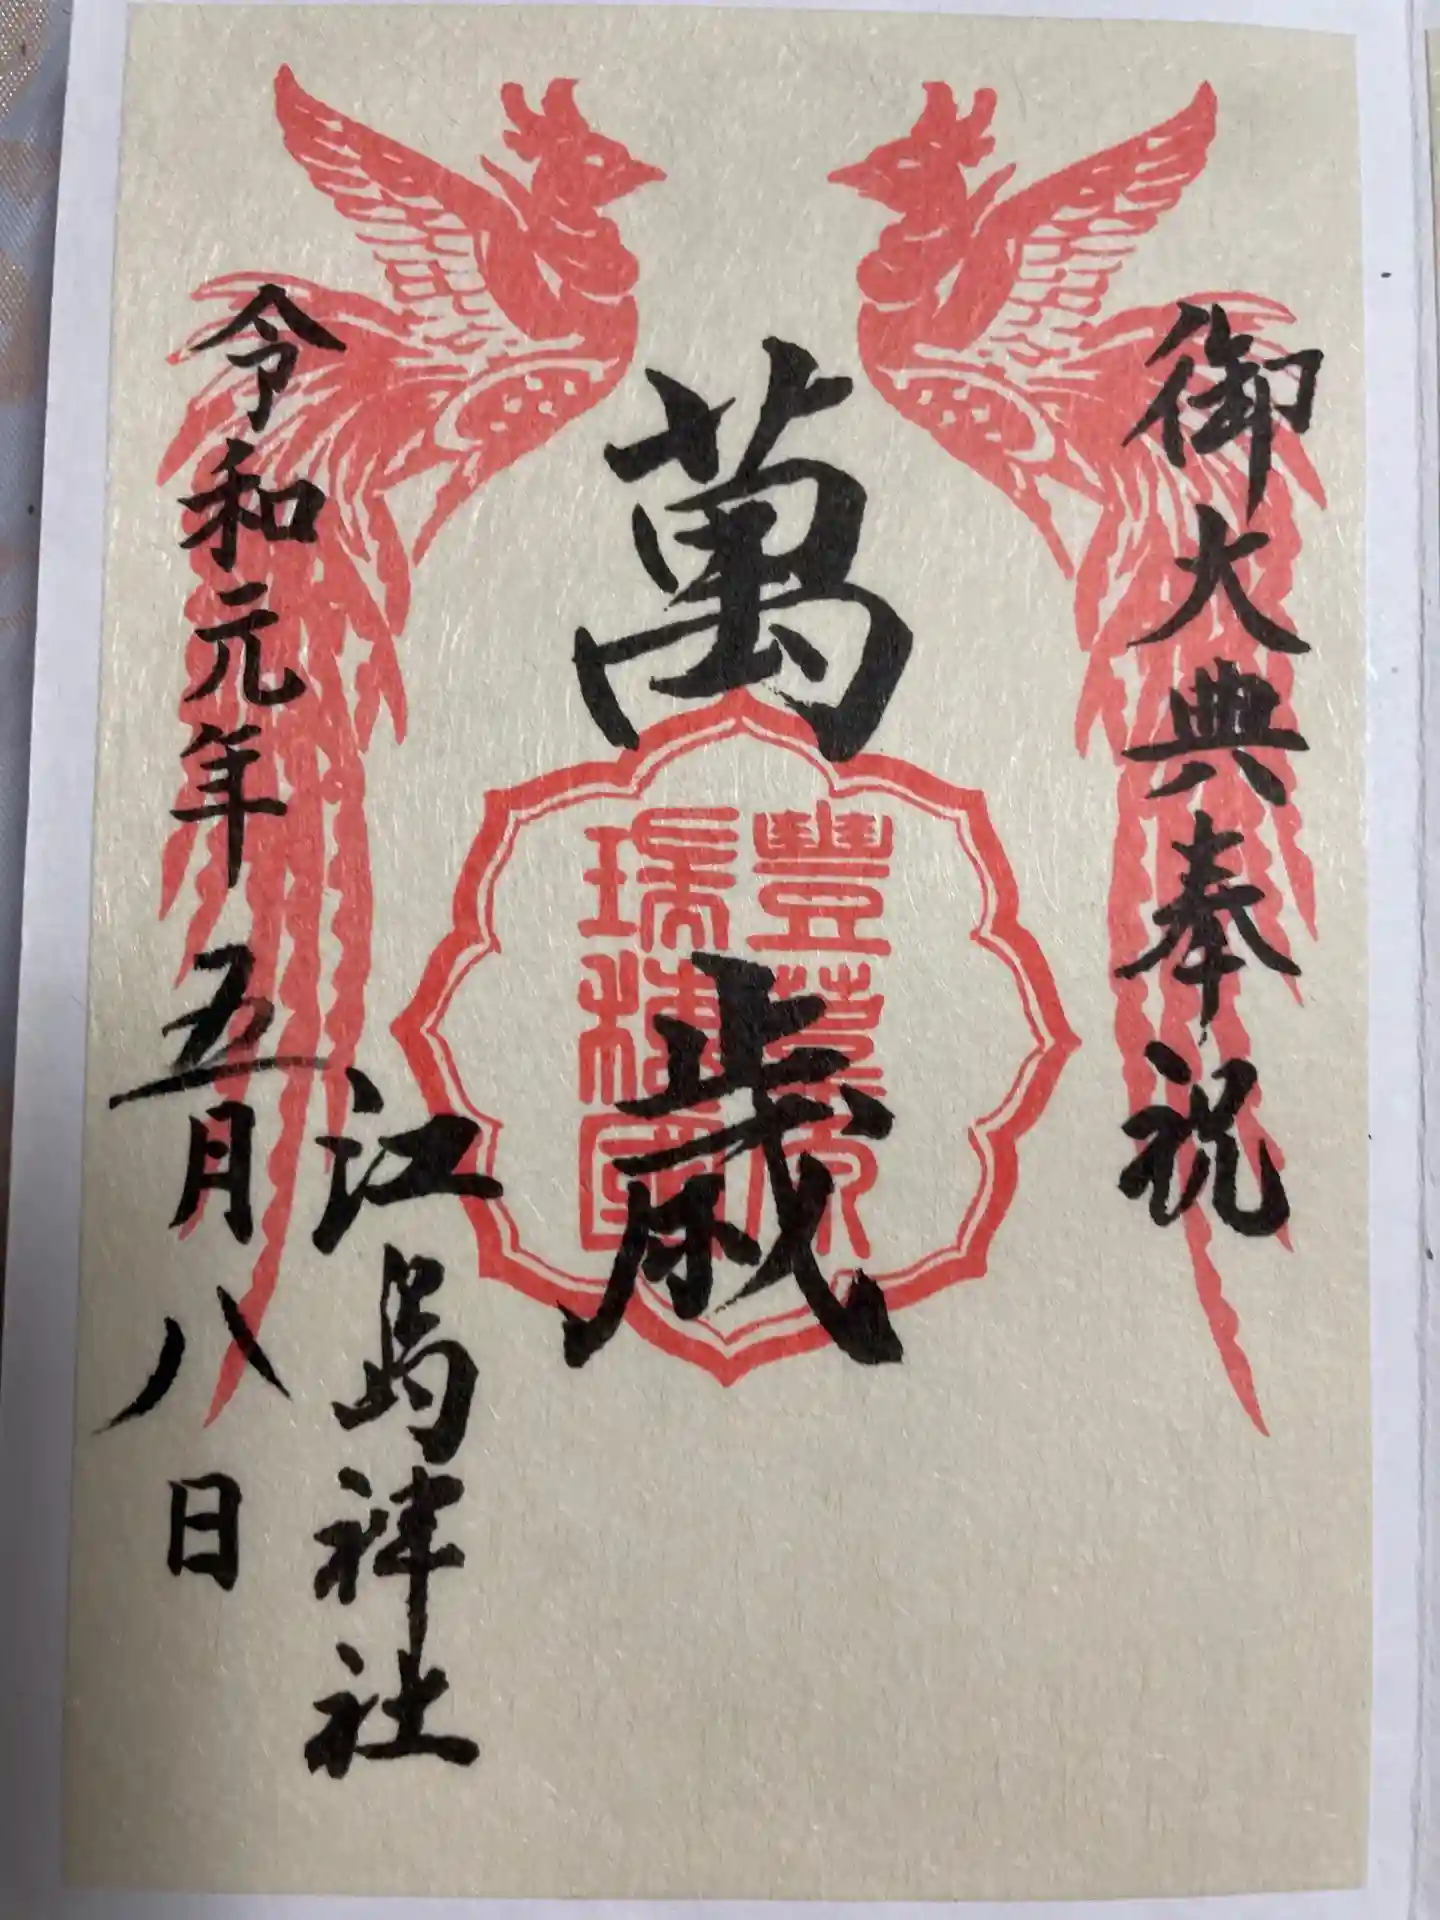 御大典奉祝
萬歳
豐葦原
瑞穂國
江島神社
令和元年五月八日